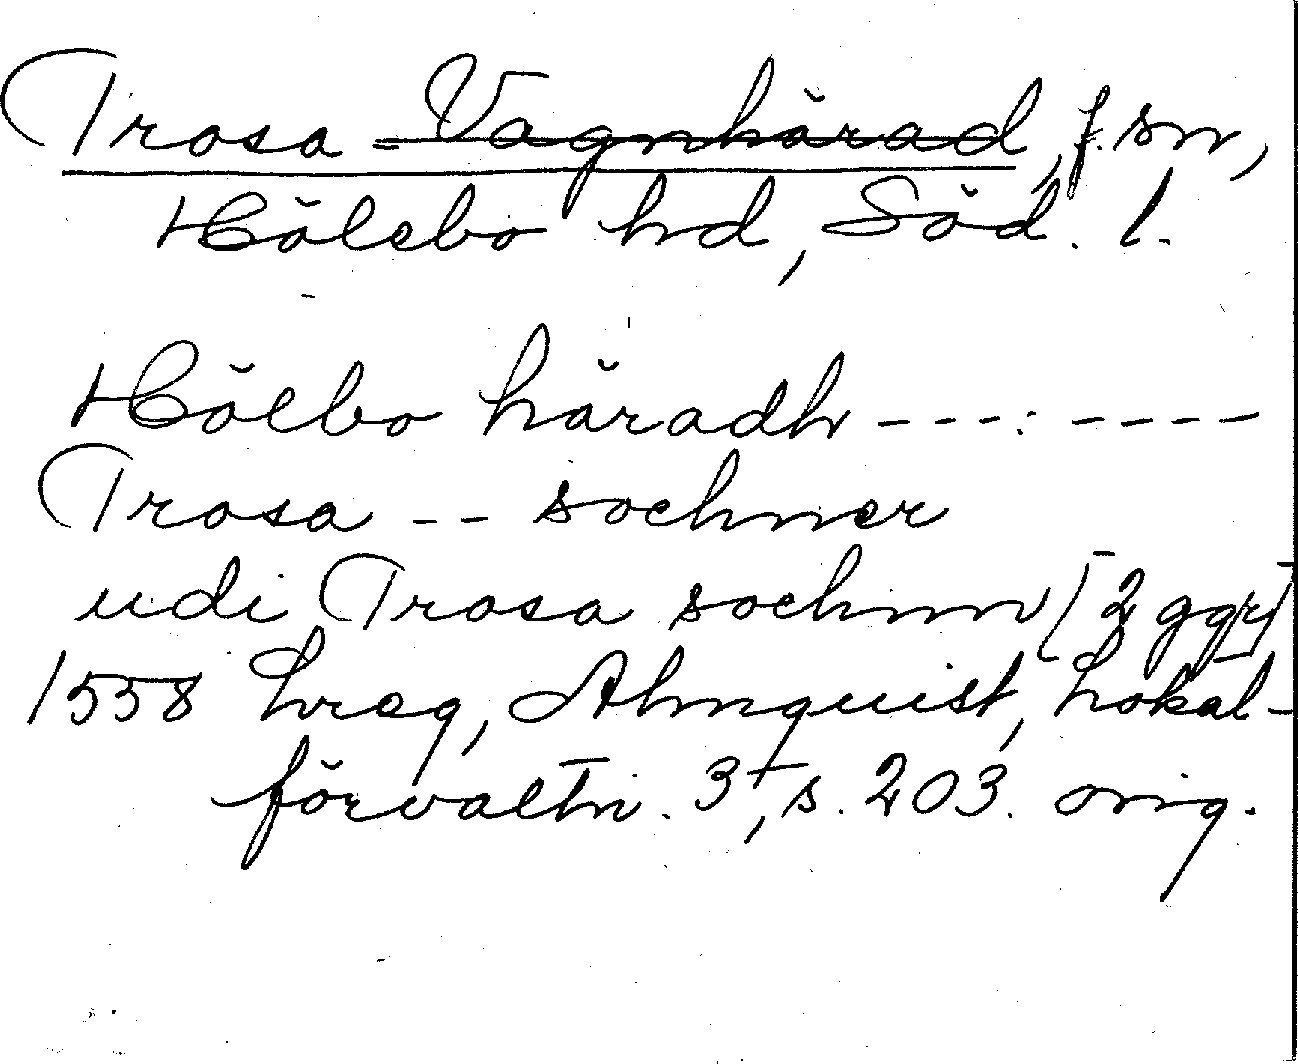 Trosa - Vagnhärad, f. sn,
Hölebo hd, Söd. l.
Hölbo häradh ---.----
Trosa -- sochner
udi Trosa sochnn [2 ggr]
1558 hreg, Almquist, Lokal-
förvaltn. 3:, s. 203. orig.